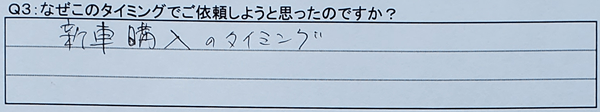 Q3:なぜこのタイミングでご依頼しようと思ったのですか？
新車購入のタイミング